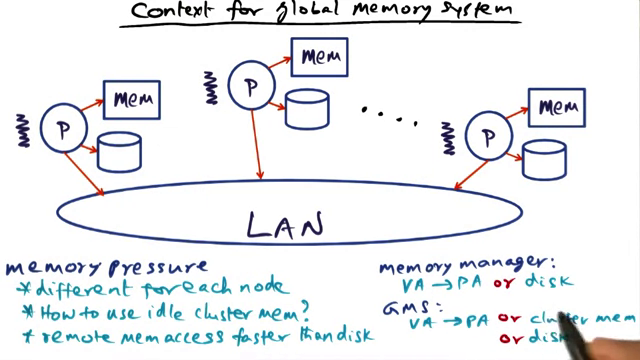 Context for global memory system
mem
P
mem
P
mem
P
LAN
memory pressure
*different for each node
*How to use idle cluster mem?
*remote mem access faster than disk
memory manager:
VA → PA or disk
GMS:
VA → PA or cluster mem
or disk